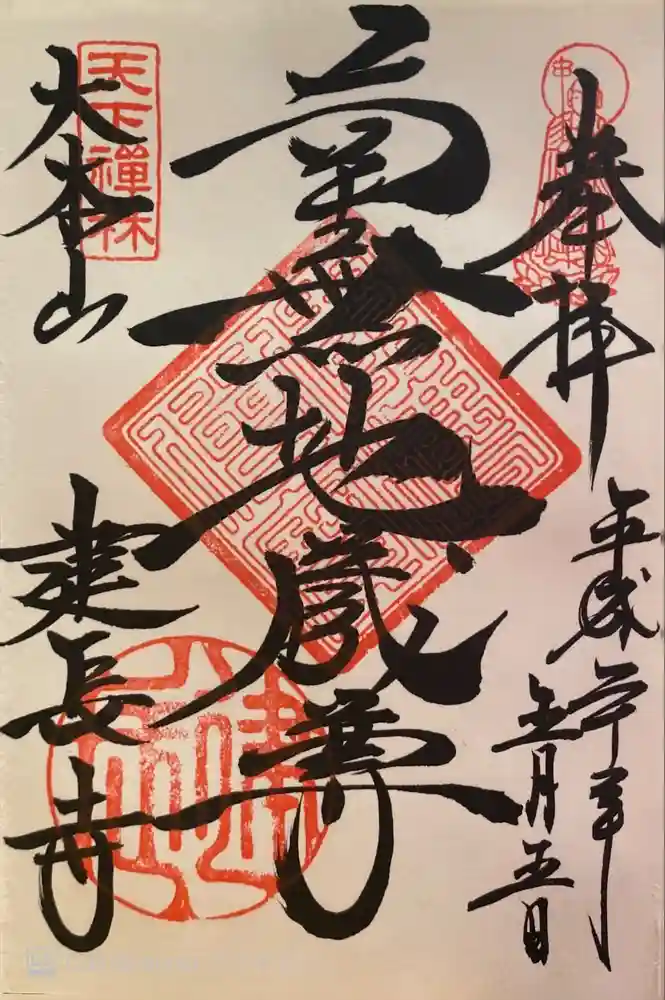 奉拝
平成
五月五日
南無地蔵尊
天下禪林
大本山
建長寺